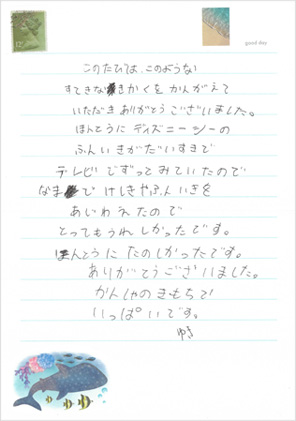 good day
このたびは、このような
すてきなきかくをかんがえて
いただきありがとうございました。
ほんとうにディズニーシーの
ふんいきがだいすきで
テレビでずっとみていたので
なまでけしきやふんいきを
あじわえたので
とってもうれしかったです。
ほんとうにたのしかったです。
ありがとうございました。
かんしゃのきもちで
いっぱいです。